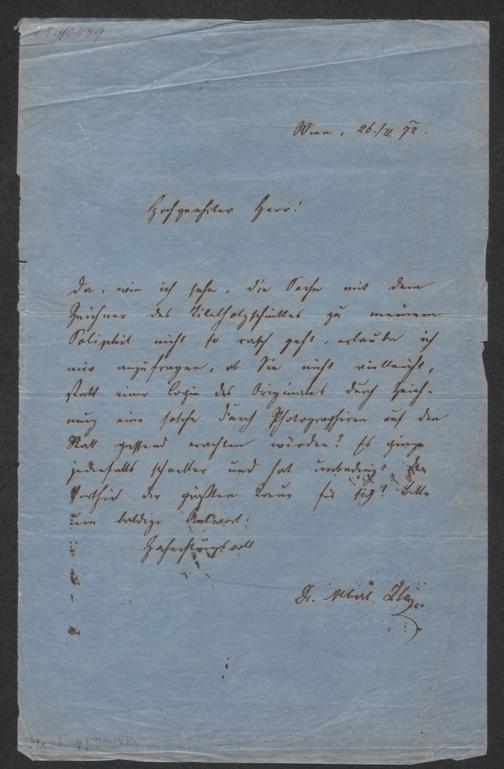 Wien, 26./II 92.
Hochgeehrter Herr!
Da, wie ich sehe, die Sache mit dem
Zeichner des Titelholzschnittes zu meinem
nicht so rasch geht, erlaube ich
mir anzufragen, ob Sie nicht vielleicht,
statt einer Copie des Originales durch Zeich-
nung eine solche durch Photographieren auf den
Stock passend erachten würden? Es ginge
jedenfalls schneller und hat unbedingt den
Vortheil der größten Treue für sich? Bitte
um baldige Antwort.
Hochachtungsvoll
Dr.